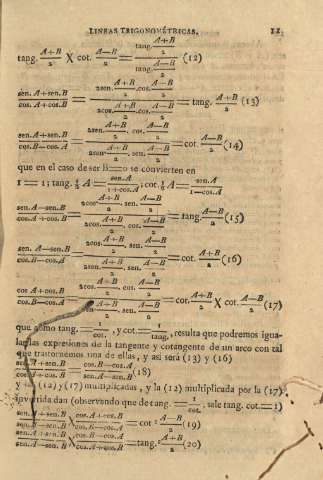 LINEAS TRIGONOMÉTRICAS. 11
tang. A+B/2 X cot. A—B/2 = tang. A+B/2 / tang. A—B/2 (12)
sen. A+sen. B / cos. A+cos. B = 2sen. A+B/2 .cos. A—B/2 / 2cos. A+B/2 .cos. A—B/2 = tang. A+B/2 (13)
sen. A+sen. B / cos. B—cos. A = 2sen. A+B/2 . cos. A—B/2 / 2sen. A+B/2 . sen. A—B/2 = cot. A—B/2 (14)
que en el caso de ser B=0 se convierten en
1=1; tang. ½ A = sen. A / 1+cos. A ; cot. ½ A = sen. A / 1—cos. A
sen. A—sen. B / cos. A+cos. B = 2cos. A+B/2 . sen. A—B/2 / 2cos. A+B/2 . cos. A—B/2 = tang. A—B/2 (15)
sen. A—sen. B / cos. B—cos. A = 2cos. A+B/2 . sen. A—B/2 / 2sen. A+B/2 . sen. A—B/2 = cot. A+B/2 (16)
cos. A+cos. B / cos. B—cos. A = 2cos. A+B/2 . cos. A—B/2 / 2sen. A+B/2 . sen. A—B/2 = cot. A+B/2 X cot. A—B/2 (17)
que como tang. = 1/cot. , y cot. = 1/tang. , resulta que podremos igua-
lar las expresiones de la tangente y cotangente de un arco con tal
que trastornemos una de ellas, y asi será (13) y (16)
sen. A+sen. B / cos. A+cos. B = cos. B—cos. A / sen. A—sen. B (18)
y (12) y (17) multiplicadas, y la (12) multiplicada por la (17)
invertida dan (observando que de tang. = 1/cot. sale tang. cot. = 1)
sen. A+sen. B / sen. A—sen. B X cos. A+cos. B / cos. B—cos. A = cot.² A—B/2 (19)
sen. A+sen. B / sen. A—sen. B X cos. B—cos. A / cos. A+cos. B = tang.² A+B/2 (20)